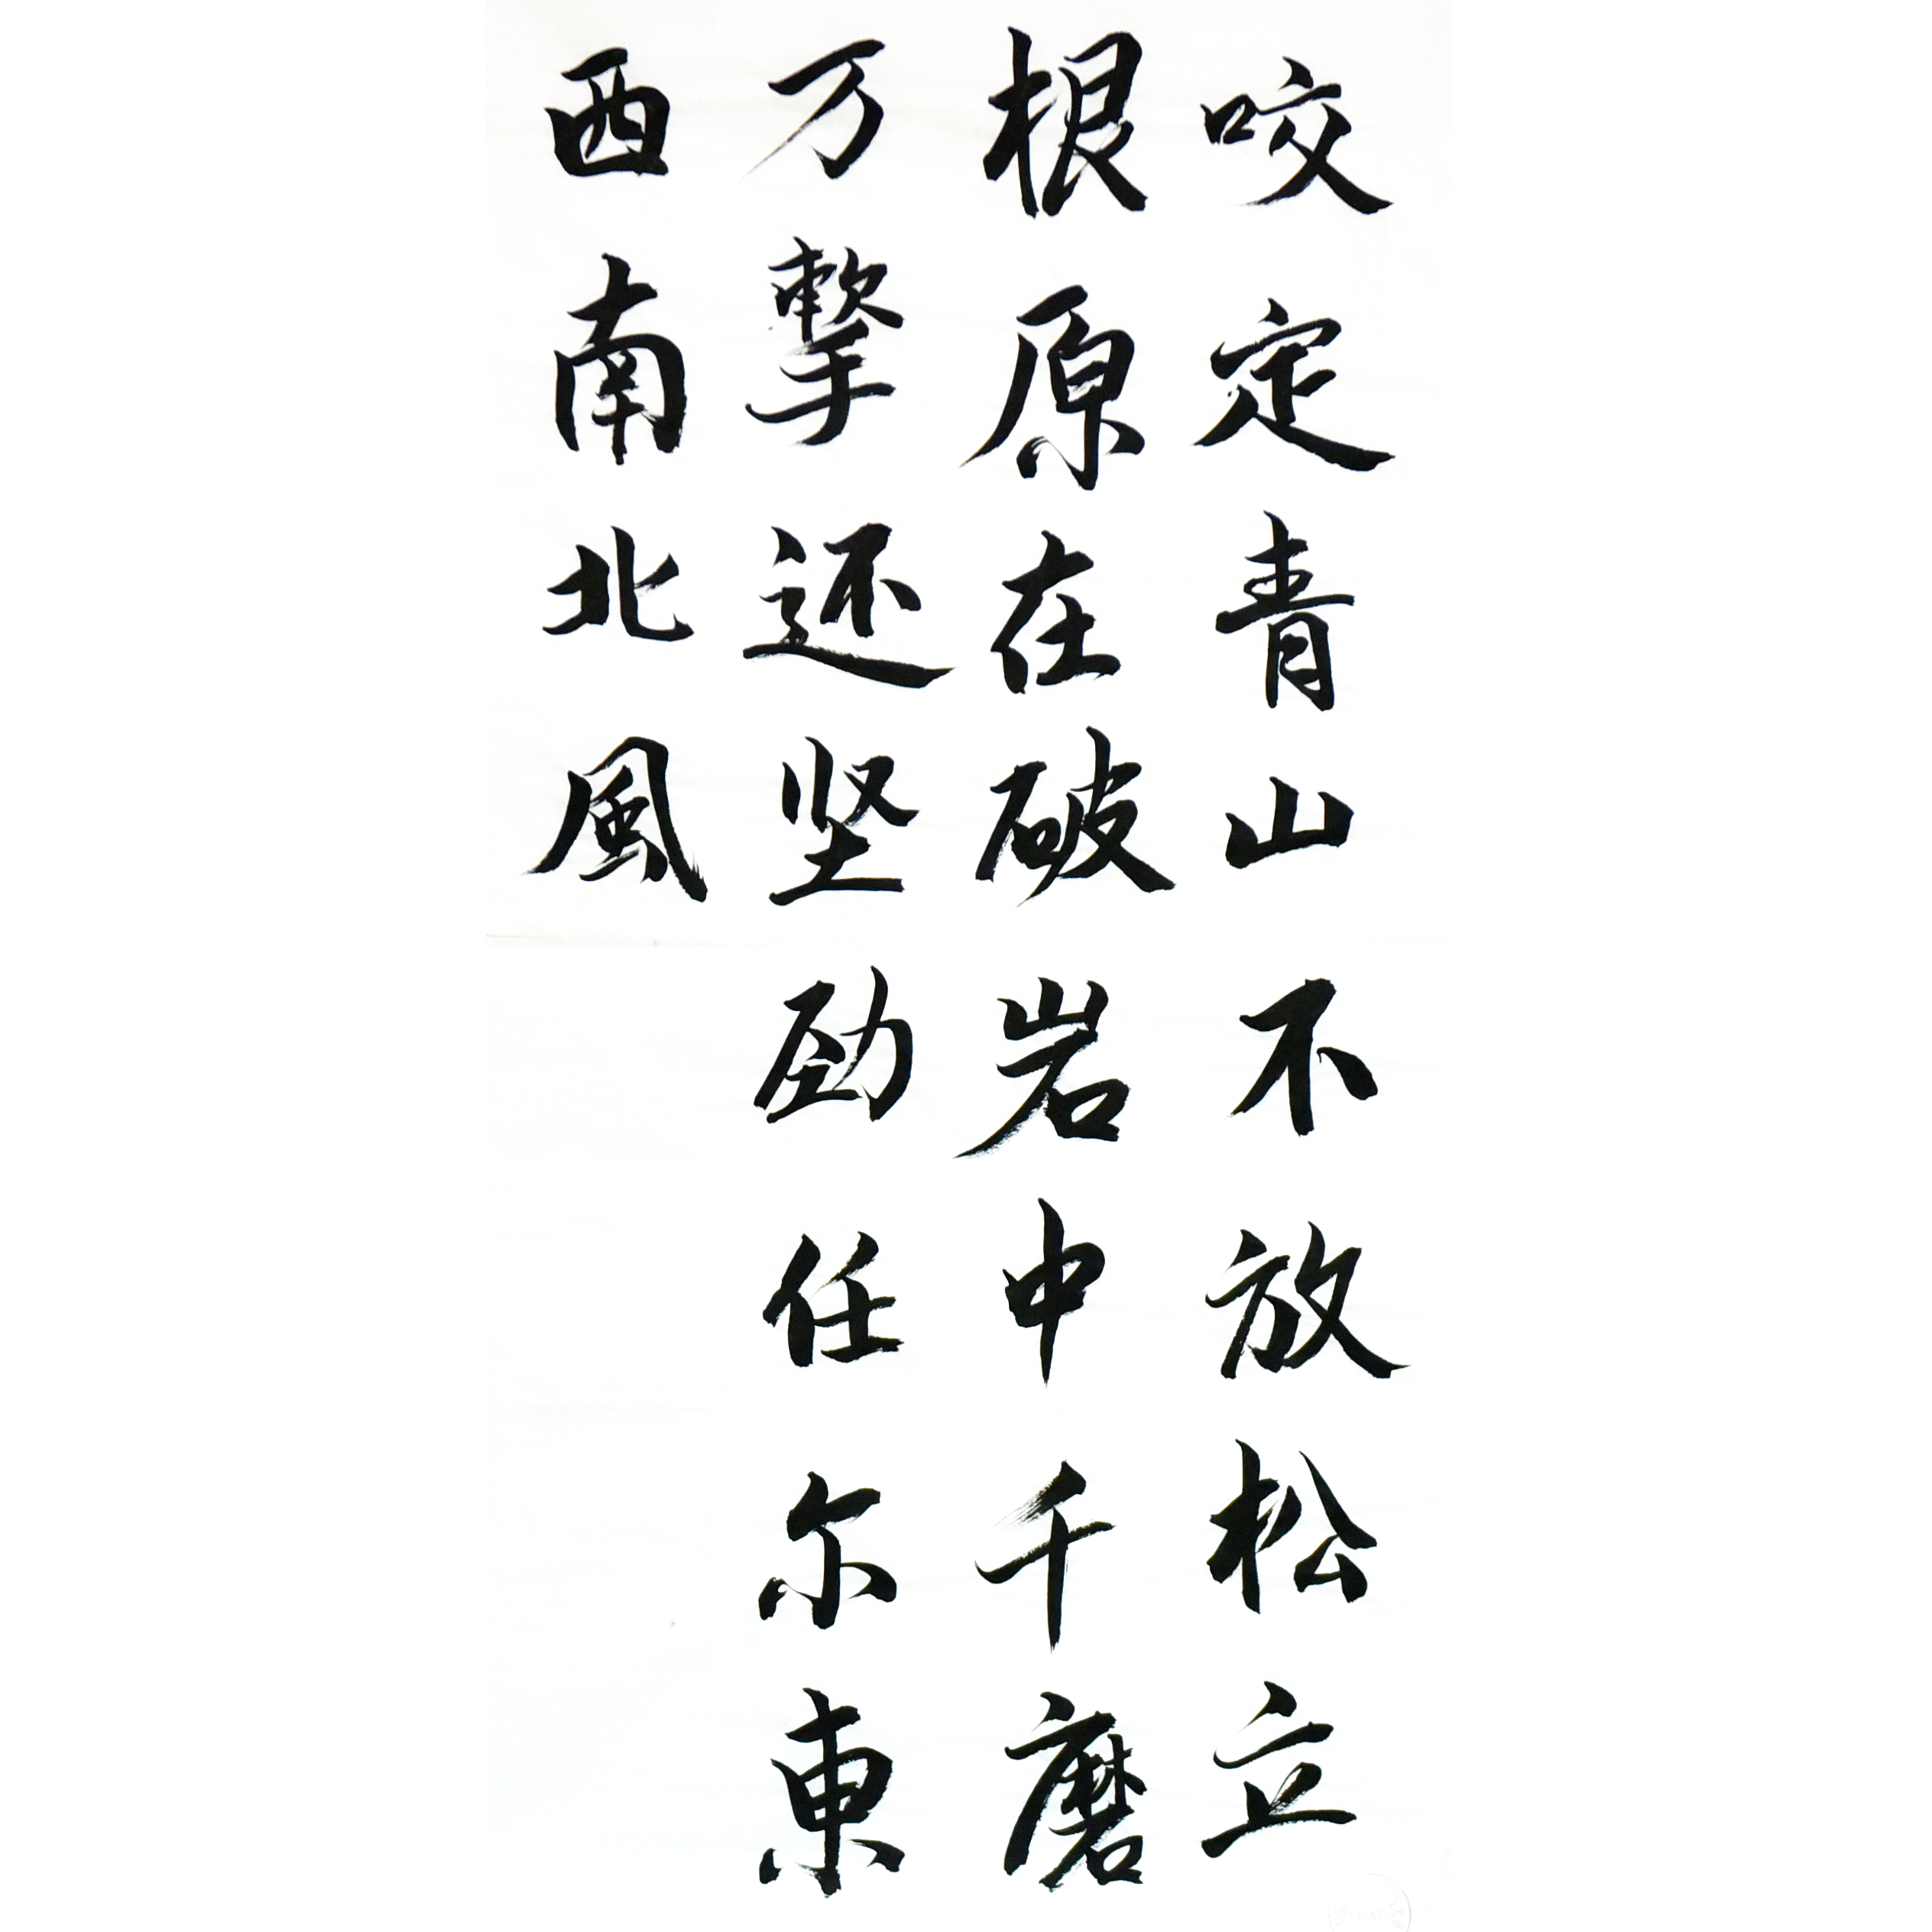 咬定青山不放松立
根原在破岩中千磨
万擊还坚劲任尔東
西南北風